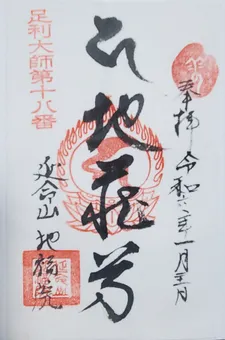 奉拝 令和六年一月三日
地蔵尊
足利大師第十八番
延命山 地福院